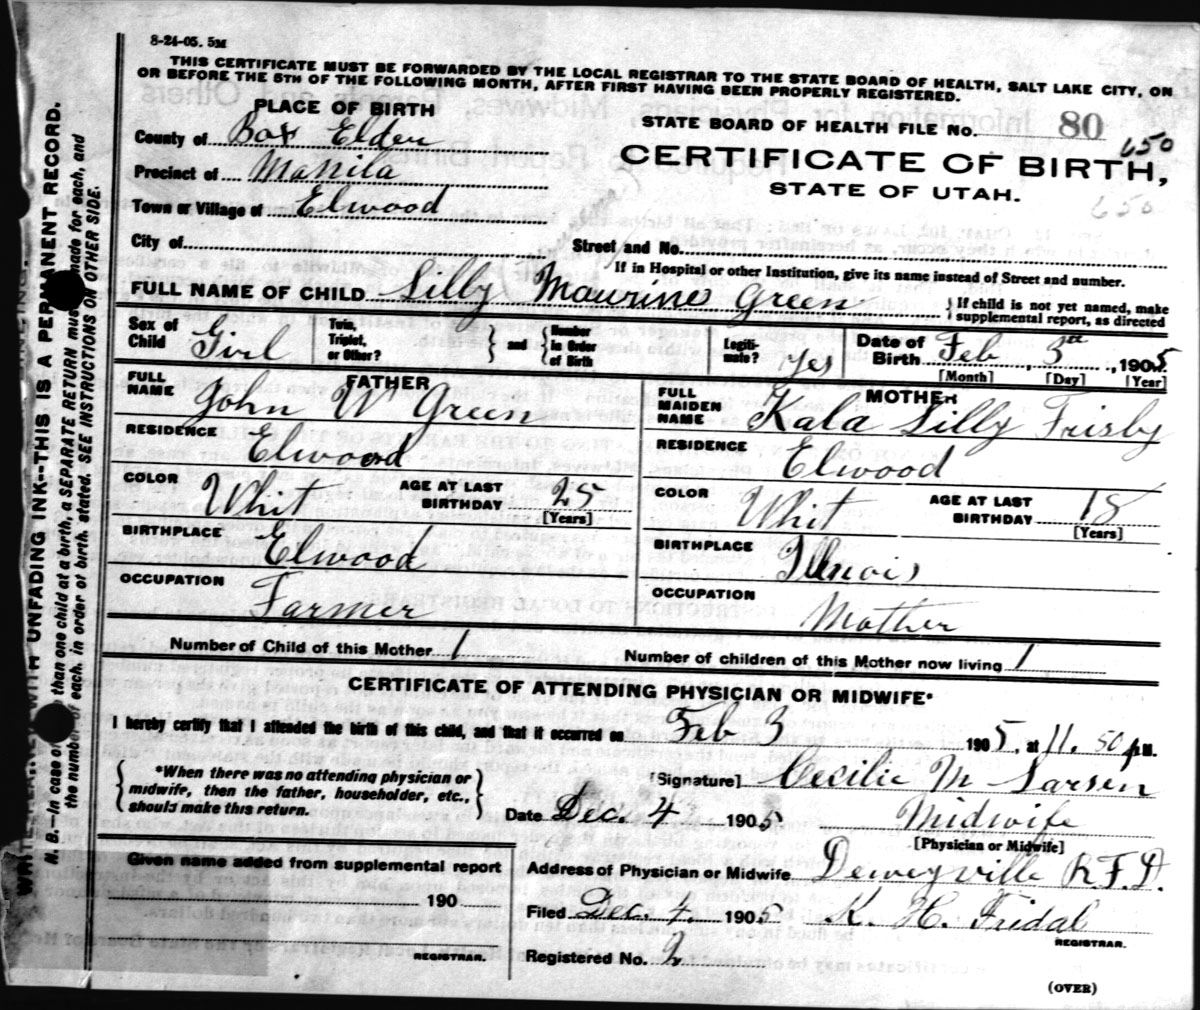 8-24-05. 5M
THIS CERTIFICATE MUST BE FORWARDED BY THE LOCAL REGISTRAR TO THE STATE BOARD OF HEALTH, SALT LAKE CITY, ON
OR BEFORE THE 5TH OF THE FOLLOWING MONTH, AFTER FIRST HAVING BEEN PROPERLY REGISTERED.
PLACE OF BIRTH
County of Box Elder
Precinct of Manila
Town or Village of Elwood
City of
STATE BOARD OF HEALTH FILE No. 80
650
CERTIFICATE OF BIRTH,
STATE OF UTAH.
650
Street and No.
If in Hospital or other Institution, give its name instead of Street and number.
FULL NAME OF CHILD Lilly Maurine Green
If child is not yet named, make
supplemental report, as directed
Sex of Child Girl
Twin, Triplet, or Other?
and
Number in Order of Birth
Legiti-mate? Yes
Date of Birth Feb 3th, 1905
[Month] [Day] [Year]
FATHER
FULL NAME John W Green
RESIDENCE Elwood
COLOR Whit
AGE AT LAST BIRTHDAY 25
[Years]
BIRTHPLACE Elwood
OCCUPATION Farmer
MOTHER
FULL MAIDEN NAME Kala Lilly Frisby
RESIDENCE Elwood
COLOR Whit
AGE AT LAST BIRTHDAY 18
[Years]
BIRTHPLACE Illinois
OCCUPATION Mother
Number of Child of this Mother 1
Number of children of this Mother now living 1
CERTIFICATE OF ATTENDING PHYSICIAN OR MIDWIFE*
I hereby certify that I attended the birth of this child, and that it occurred on Feb 3 1905, at 11.50 P M.
*When there was no attending physician or
midwife, then the father, householder, etc.,
should make this return.
[Signature] Cecilie M Larsen
Date Dec. 4 1905
Midwife
[Physician or Midwife]
Given name added from supplemental report
190
REGISTRAR.
Address of Physician or Midwife Deweyville R.F.D.
Filed Dec. 4. 1905 K. H. Fridal
REGISTRAR.
Registered No. 2
(OVER)
WRITE WITH UNFADING INK--THIS IS A PERMANENT RECORD.
N. B.--In case of than one child at a birth, a SEPARATE RETURN must made for each, and
the number of each, in order of birth, stated. SEE INSTRUCTIONS ON OTHER SIDE.